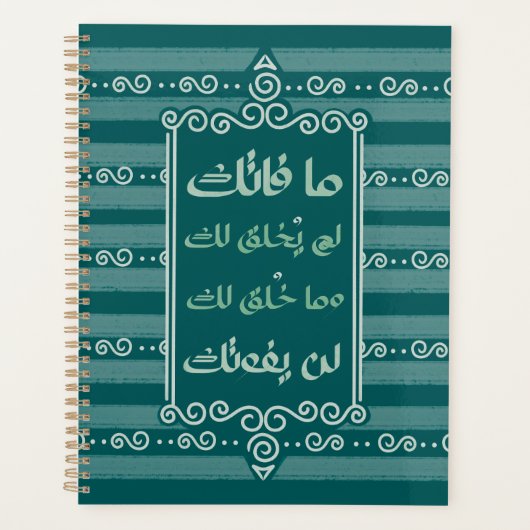 ما فاتك
لم يُخلق لك
وما خُلق لك
لن يفوتك